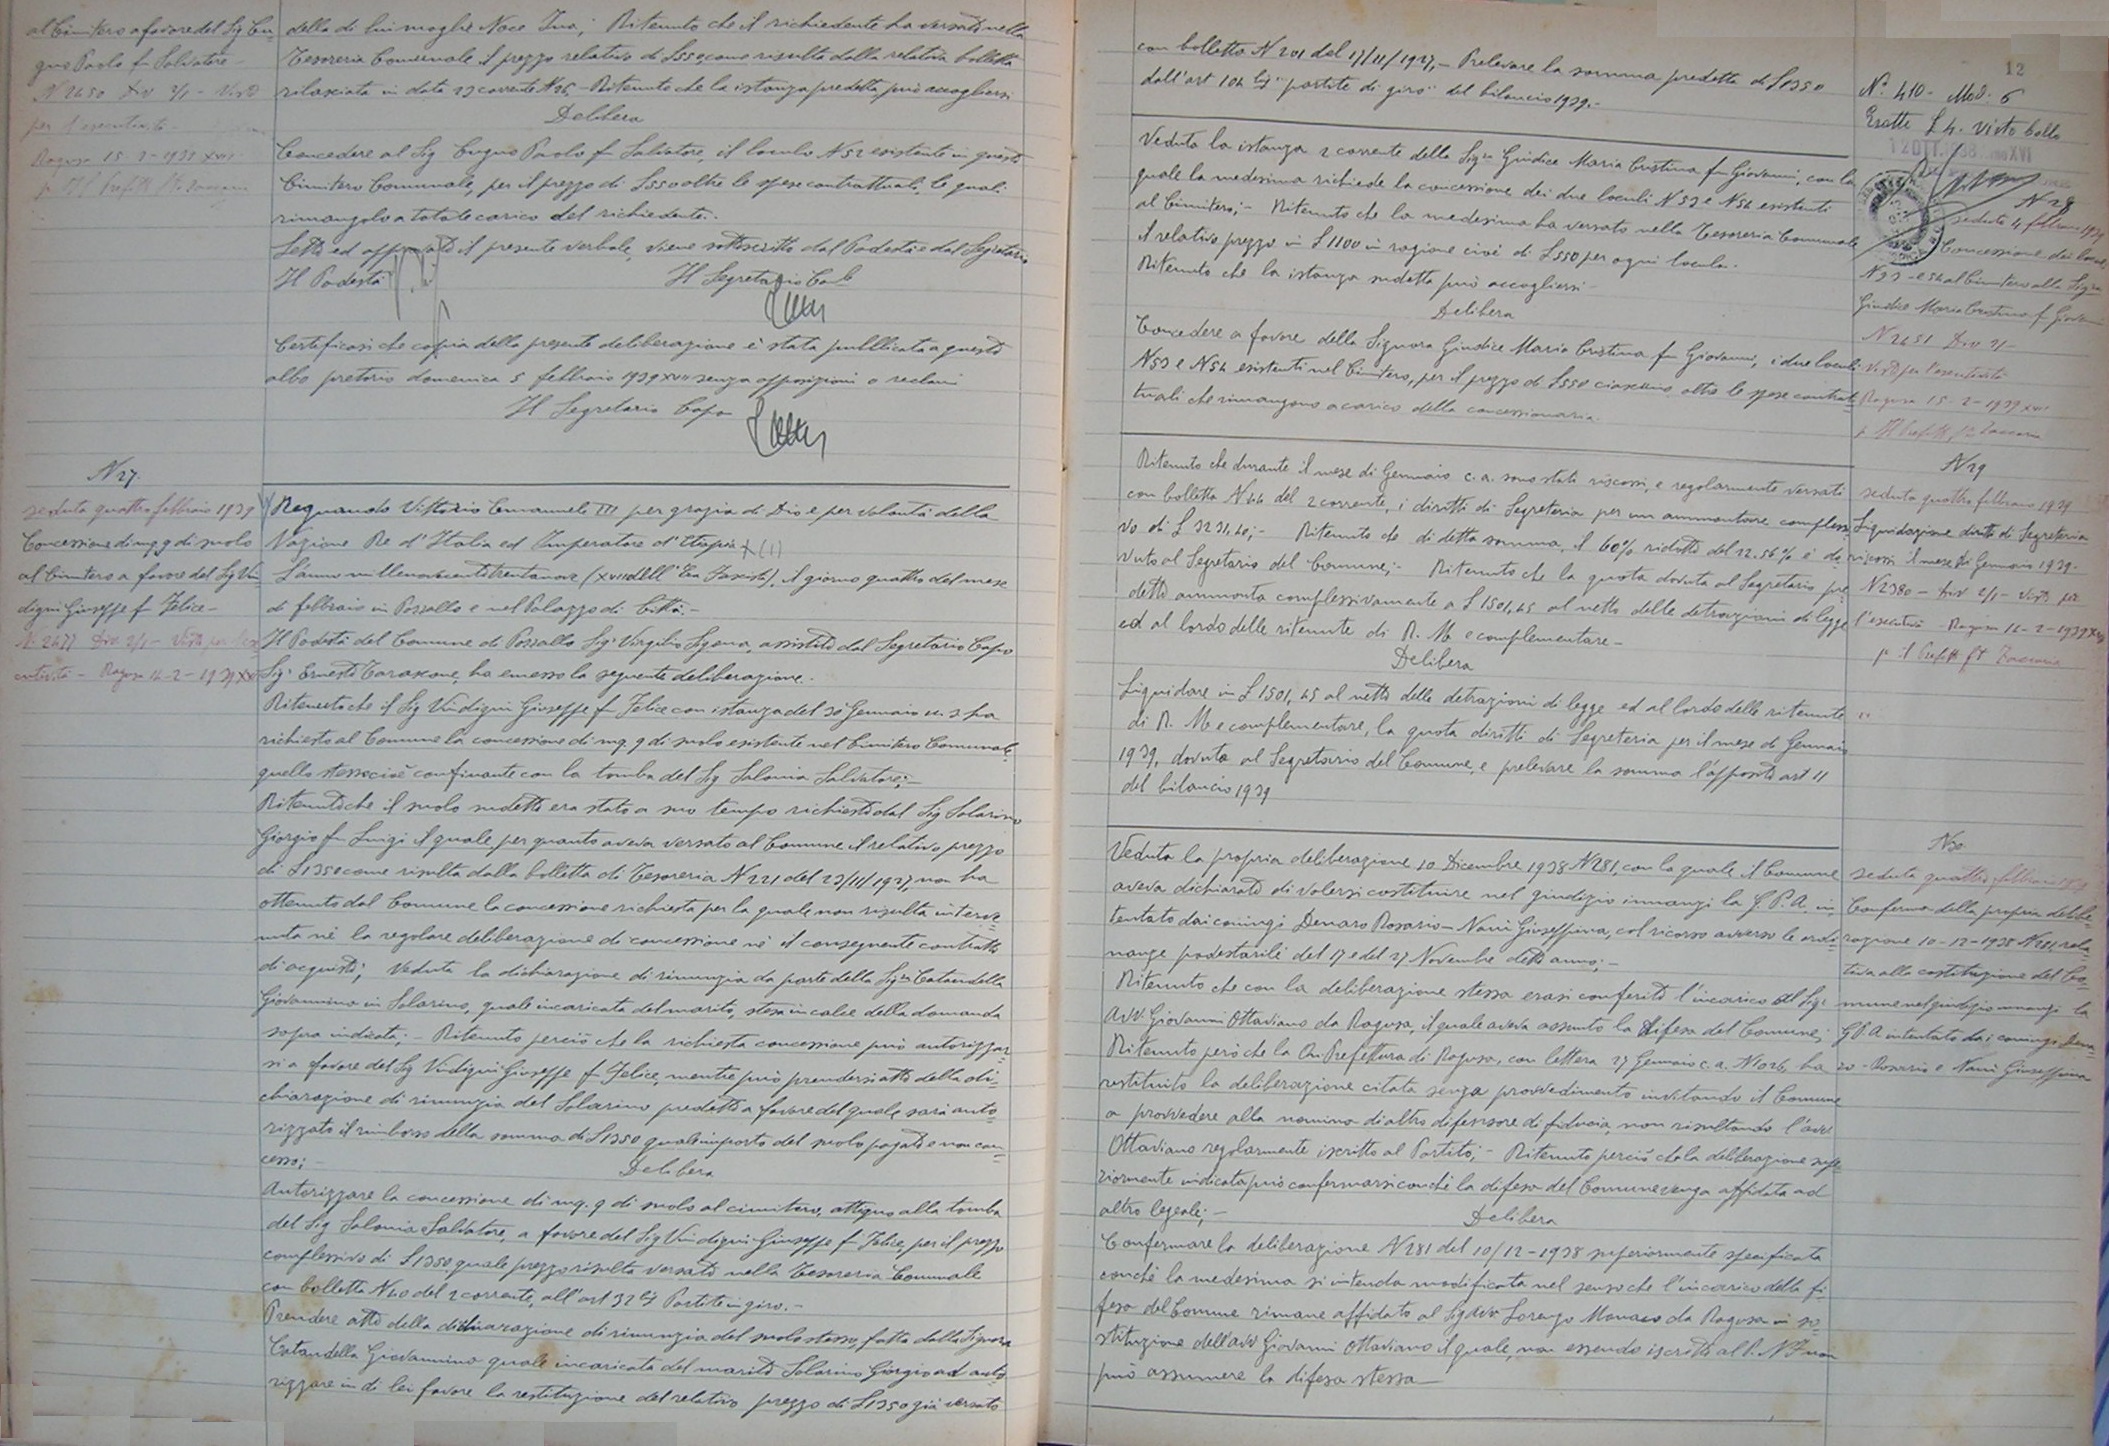 al Cimitero a favore del Sig Cu=
gno Paolo fu Salvatore -
N 2650 Div 2/1 - Visto
per l'esecutività -
Ragusa 15-2-1939 XVII
della di lui moglie Noce Ina; Ritenuto che il richiedente ha versato nella
Tesoreria Comunale il prezzo relativo di L 550 come risulta dalla relativa bolletta
rilasciata in data 23 corrente N 26 - Ritenuto che la istanza predetta può accogliersi
Delibera
Concedere al Sig Cugno Paolo fu Salvatore, il loculo N 52 esistente in questo
Cimitero Comunale, per il prezzo di L 550 oltre le spese contrattuali, le quali
rimangolo a totale carico del richiedente.
Letto ed approvato il presente verbale, viene sottoscritto dal Podestà e dal Segretario
Il Podestà Il Segretario Capo
Certificasi che copia della presente deliberazione è stata pubblicata a questo
albo pretorio domenica 5 febbraio 1939 XVII senza opposizioni o reclami
Il Segretario Capo
N 27.
seduta quattro febbraio 1939
Concessione di mq 9 di suolo
al Cimitero a favore del Sig Vin
digni Giuseppe fu Felice -
N. 2677 Div 2/1 - Visto per l'ese
cutività - Ragusa 14-2-1939 XVII
Regnando Vittorio Emanuele III per grazia di Dio e per volontà della
Nazione Re d'Italia ed Imperatore d'Etiopia X (1)
L'anno millenovecentotrentanove (XVII dell'Era Fascista), il giorno quattro del mese
di febbraio in Pozzallo e nel Palazzo di Città; -
Il Podestà del Comune di Pozzallo Sigr Virgilio Sigona, assistito dal Segretario Capo
Sigr Ernesto Tarascone, ha emesso la seguente deliberazione.
Ritenuto che il Sig Vindigni Giuseppe fu Felice con istanza del 30 Gennaio u. s. ha
richiesto al Comune la concessione di mq. 9 di suolo esistente nel Cimitero Comunale,
quello stesso cioè confinante con la tomba del Sig Salonia Salvatore; -
Ritenuto che il suolo sudetto era stato a suo tempo richiesto dal Sig Solarino
Giorgio fu Luigi il quale, per quanto aveva versato al Comune il relativo prezzo
di L 1350 come risulta dalla bolletta di Tesoreria N 221 del 23/11/1927, non ha
ottenuto dal Comune la concessione richiesta per la quale non risulta interve
nuta nè la regolare deliberazione di concessione nè il conseguente contratto
di acquisto; Veduta la dichiarazione di rinunzia da parte della Sigra Catandella
Giovannina in Solarino, quale incaricata del marito, stesa in calce della domanda
sopra indicata; - Ritenuto perciò che la richiesta concessione può autorizzar
si a favore del Sig Vindigni Giuseppe fu Felice, mentre può prendersi atto della di=
chiarazione di rinunzia del Solarino predetto a favore del quale sarà auto
rizzato il rimborso della somma di L 1350 quale importo del suolo pagato e non con=
cesso; -
Delibera
Autorizzare la concessione di mq. 9 di suolo al cimitero, attiguo alla tomba
del Sig Salonia Salvatore, a favore del Sig Vindigni Giuseppe fu Felice, per il prezzo
complessivo di L 1350 quale prezzo risulta versato nella Tesoreria Comunale
con bolletta N 40 del 2 corrente, all'art 32 bis Partite in giro. -
Prendere atto della dichiarazione di rinunzia del suolo stesso, fatta dalla Signora
Catandella Giovannina quale incaricata del marito Solarino Giorgio ed auto
rizzare in di lei favore la restituzione del relativo prezzo di L 1350 già versato
12
con bolletta N 201 del 17/11/1927, - Prelevare la somma predetta di L 1350
dall'art 104 bis "partite di giro" del bilancio 1939. -
N° 410 - Mod. 6
Esatte L 4. visto bollo
12 OTT. 1938 Anno XVI
Veduta la istanza 2 corrente della Sigra Giudice Maria Cristina fu Giovanni, con la
quale la medesima richiede la concessione dei due loculi N 53 e N 54 esistenti
al Cimitero; - Ritenuto che la medesima ha versato nella Tesoreria Comunale
il relativo prezzo in L 1100 in ragione cioè di L 550 per ogni loculo.
Ritenuto che la istanza sudetta può accogliersi -
Delibera
Concedere a favore della Signora Giudice Maria Cristina fu Giovanni, i due loculi
N 53 e N 54 esistenti nel Cimitero, per il prezzo di L 550 ciascuno, oltre le spese contrat=
tuali che rimangono a carico della concessionaria.
N 28
seduta 4 febbraio 1939
Concessione dei loculi
N 53 - e 54 al Cimitero alla Sigra
Giudice Maria Cristina fu Giovanni
N 2651 Div 2/1 -
Visto per l'esecutività
Ragusa 15-2-1939 XVII
p Il Prefetto fto Zaccaria
Ritenuto che durante il mese di Gennaio c. a. sono stati riscossi, e regolarmente versati
con bolletta N 44 del 2 corrente, i diritti di Segreteria per un ammontare complessi
vo di L 3231,40; - Ritenuto che di detta somma, il 60% ridotto del 22.56% è do
vuto al Segretario del Comune; - Ritenuto che la quota dovuta al Segretario pre=
detto ammonta complessivamente a L 1501,45 al netto delle detrazioni di legge
ed al lordo delle ritenute di R. M. e complementare -
Delibera
Liquidare in L 1501,45 al netto delle detrazioni di legge ed al lordo delle ritenute
di R. M. e complementare, la quota diritti di Segreteria per il mese di Gennaio
1939, dovuta al Segretario del Comune, e prelevare la somma l'apposito art 11
del bilancio 1939
N 29
seduta quattro febbraio 1939
Liquidazione diritti di Segreteria
riscossi il mese di Gennaio 1939.
N 2380 - Div 2/1 - Visto per
l'esecutività - Ragusa 14-2-1939 XVII
p il Prefetto fto Zaccaria
Veduta la propria deliberazione 10 Dicembre 1938 N 281, con la quale il Comune
aveva dichiarato di volersi costituire nel giudizio innanzi la G. P. A. in
tentato dai coniugi Denaro Rosario - Nanì Giuseppina, col ricorso avverso le ordi
nanze podestarili del 17 e del 27 Novembre detto anno; -
Ritenuto che con la deliberazione stessa erasi conferito l'incarico al Sigr
Avv. Giovanni Ottaviano da Ragusa, il quale aveva assunto la difesa del Comune;
Ritenuto però che la On Prefettura di Ragusa, con lettera 27 Gennaio c. a. N 1026, ha
restituito la deliberazione citata senza provvedimento invitando il Comune
a provvedere alla nomina di altro difensore di fiducia, non risultando l'avv.
Ottaviano regolarmente iscritto al Partito; - Ritenuto perciò che la deliberazione supe
riormente indicata può confermarsi conchè la difesa del Comune venga affidata ad
altro legale; -
Delibera
Confermare la deliberazione N 281 del 10/12-1938 superiormente specificata
conchè la medesima si intenda modificata nel senso che l'incarico della fi=
fesa del Comune rimane affidato al Sig Avv Lorenzo Monaco da Ragusa in so=
stituzione dell'avv Giovanni Ottaviano il quale, non essendo iscritto al P. N. F non
può assumere la difesa stessa
N 30
seduta quattro febbraio 1939
Conferma della propria delibe=
razione 10-12-1938 N 281, rela
tiva alla costituzione del Co=
mune nel giudizio innanzi la
G P A intentato dai coniugi Dena=
ro - Rosario e Nanì Giuseppina